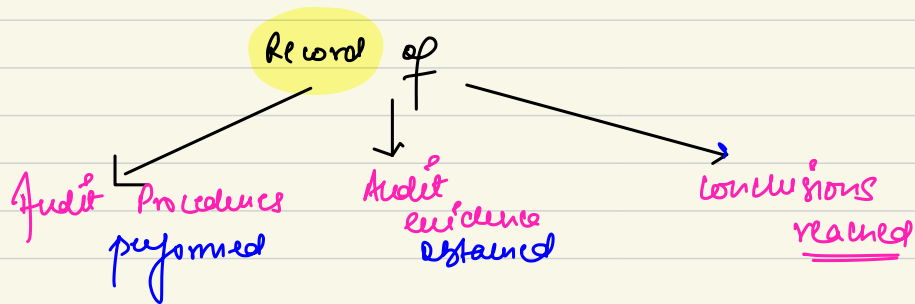 Record of
Audit Procedures
performed
Audit
evidence
obtained
Conclusions
reached